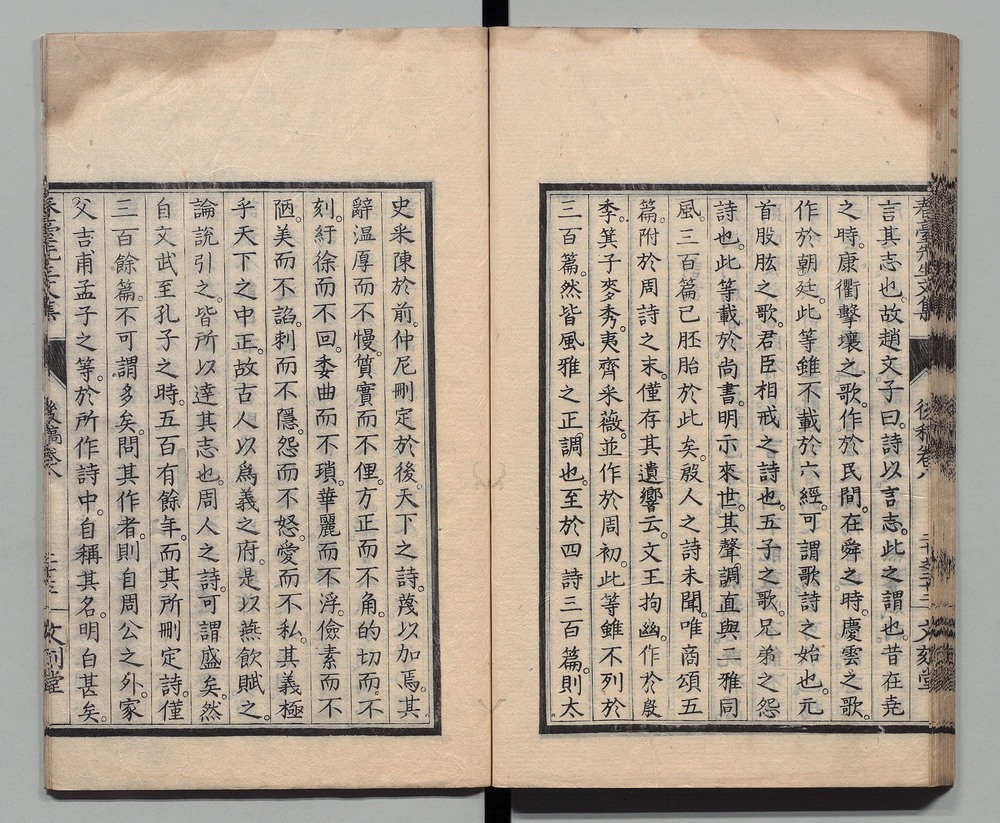 言其志也。故趙文子曰。詩以言志。此之謂也。昔在堯
之時。康衢擊壤之歌。作於民間。在舜之時。慶雲之歌。
作於朝廷。此等雖不載於六經。可謂歌詩之始也。元
首股肱之歌。君臣相戒之詩也。五子之歌。兄弟之怨
詩也。此等載於尚書。明示來世。其聲調直與二雅同
風。三百篇已胚胎於此矣。殷人之詩未聞。唯商頌五
篇。附於周詩之末。僅存其遺響云。文王拘幽。作於殷
季。箕子麥秀。夷齊采薇。並作於周初。此等雖不列於
三百篇。然皆風雅之正調也。至於四詩三百篇。則太
史采陳於前。仲尼刪定於後。天下之詩。蔑以加焉。其
辭溫厚而不慢。質實而不俚。方正而不角。的切而不
刻。紆徐而不回。委曲而不瑣。華麗而不浮。儉素而不
陋。美而不諂。刺而不隱。怨而不怒。愛而不私。其義極
乎天下之中正。故古人以爲義之府。是以燕飲賦之。
論說引之。皆所以達其志也。周人之詩。可謂盛矣。然
自文武至孔子之時。五百有餘年。而其所刪定詩。僅
三百餘篇。不可謂多矣。問其作者。則自周公之外。家
父吉甫孟子之等。於所作詩中。自稱其名。明白甚矣。